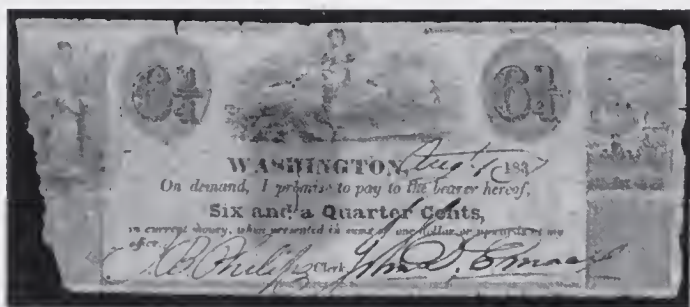 6¼ 6¼
WASHINGTON, Aug. 1837
On demand, I promise to pay to the bearer hereof,
Six and a Quarter Cents,
in current money, when presented in sums of one dollar or upwards at my
office.
B. Philips Clerk. John D.